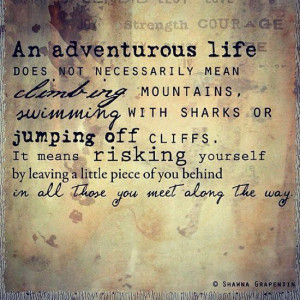 Strength COURAGE
An adventurous life
DOES NOT NECESSARILY MEAN
climbing MOUNTAINS,
swimming WITH SHARKS OR
jumping off CLIFFS.
It means risking yourself
by leaving a little piece of you behind
in all those you meet along the way.
© SHAWNA GRAPENTIN